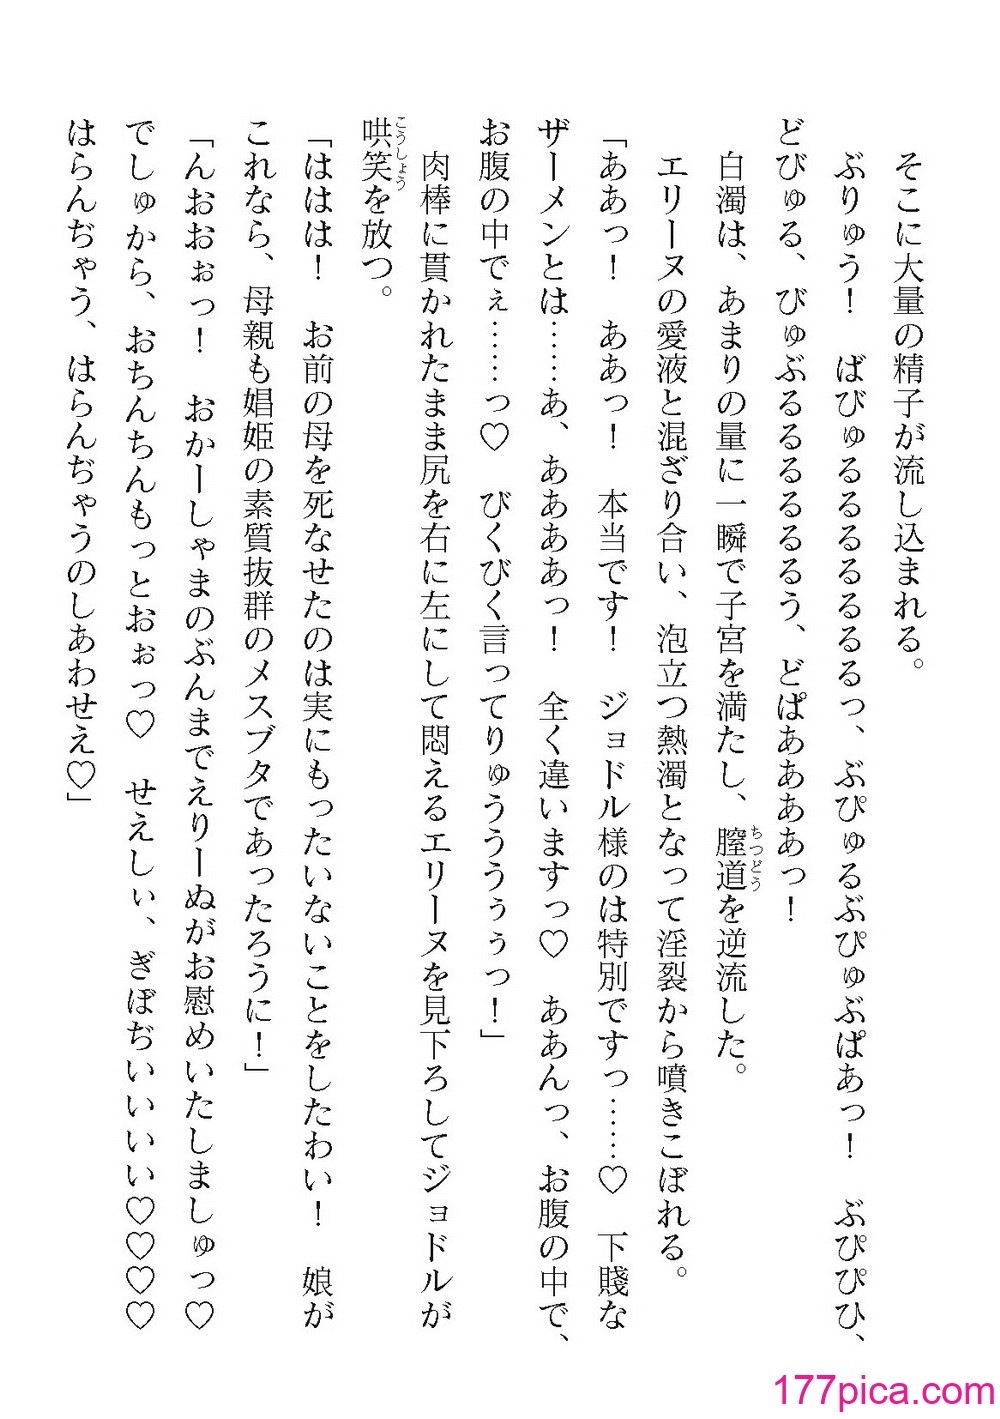 そこに大量の精子が流し込まれる。
ぶりゅう！　ばびゅるるるるるるるっ、ぶぴゅるぶぴゅぶぱあっ！　ぶぴぴひ、
どびゅる、びゅぶるるるるるるう、どぱあああっ！
白濁は、あまりの量に一瞬で子宮を満たし、膣道を逆流した。
ちつどう
エリーヌの愛液と混ざり合い、泡立つ熱濁となって淫裂から噴きこぼれる。
「ああっ！　ああっ！　本当です！　ジョドル様のは特別ですっ……♡　下賤な
ザーメンとは……あ、ああああっ！　全く違いますっ♡　ああんっ、お腹の中で、
お腹の中でぇ……っ♡　びくびく言ってりゅうううぅぅっ！」
肉棒に貫かれたまま尻を右に左にして悶えるエリーヌを見下ろしてジョドルが
哄笑を放つ。
こうしょう
「ははは！　お前の母を死なせたのは実にもったいないことをしたわい！　娘が
これなら、母親も娼姫の素質抜群のメスブタであったろうに！」
「んおおぉっ！　おかーしゃまのぶんまでえりーぬがお慰めいたしましゅっ♡
でしゅから、おちんちんもっとおぉっ♡　せえしぃ、ぎぼぢいいいい♡♡♡♡
はらんぢゃう、はらんぢゃうのしあわせえ♡」
177pica.com